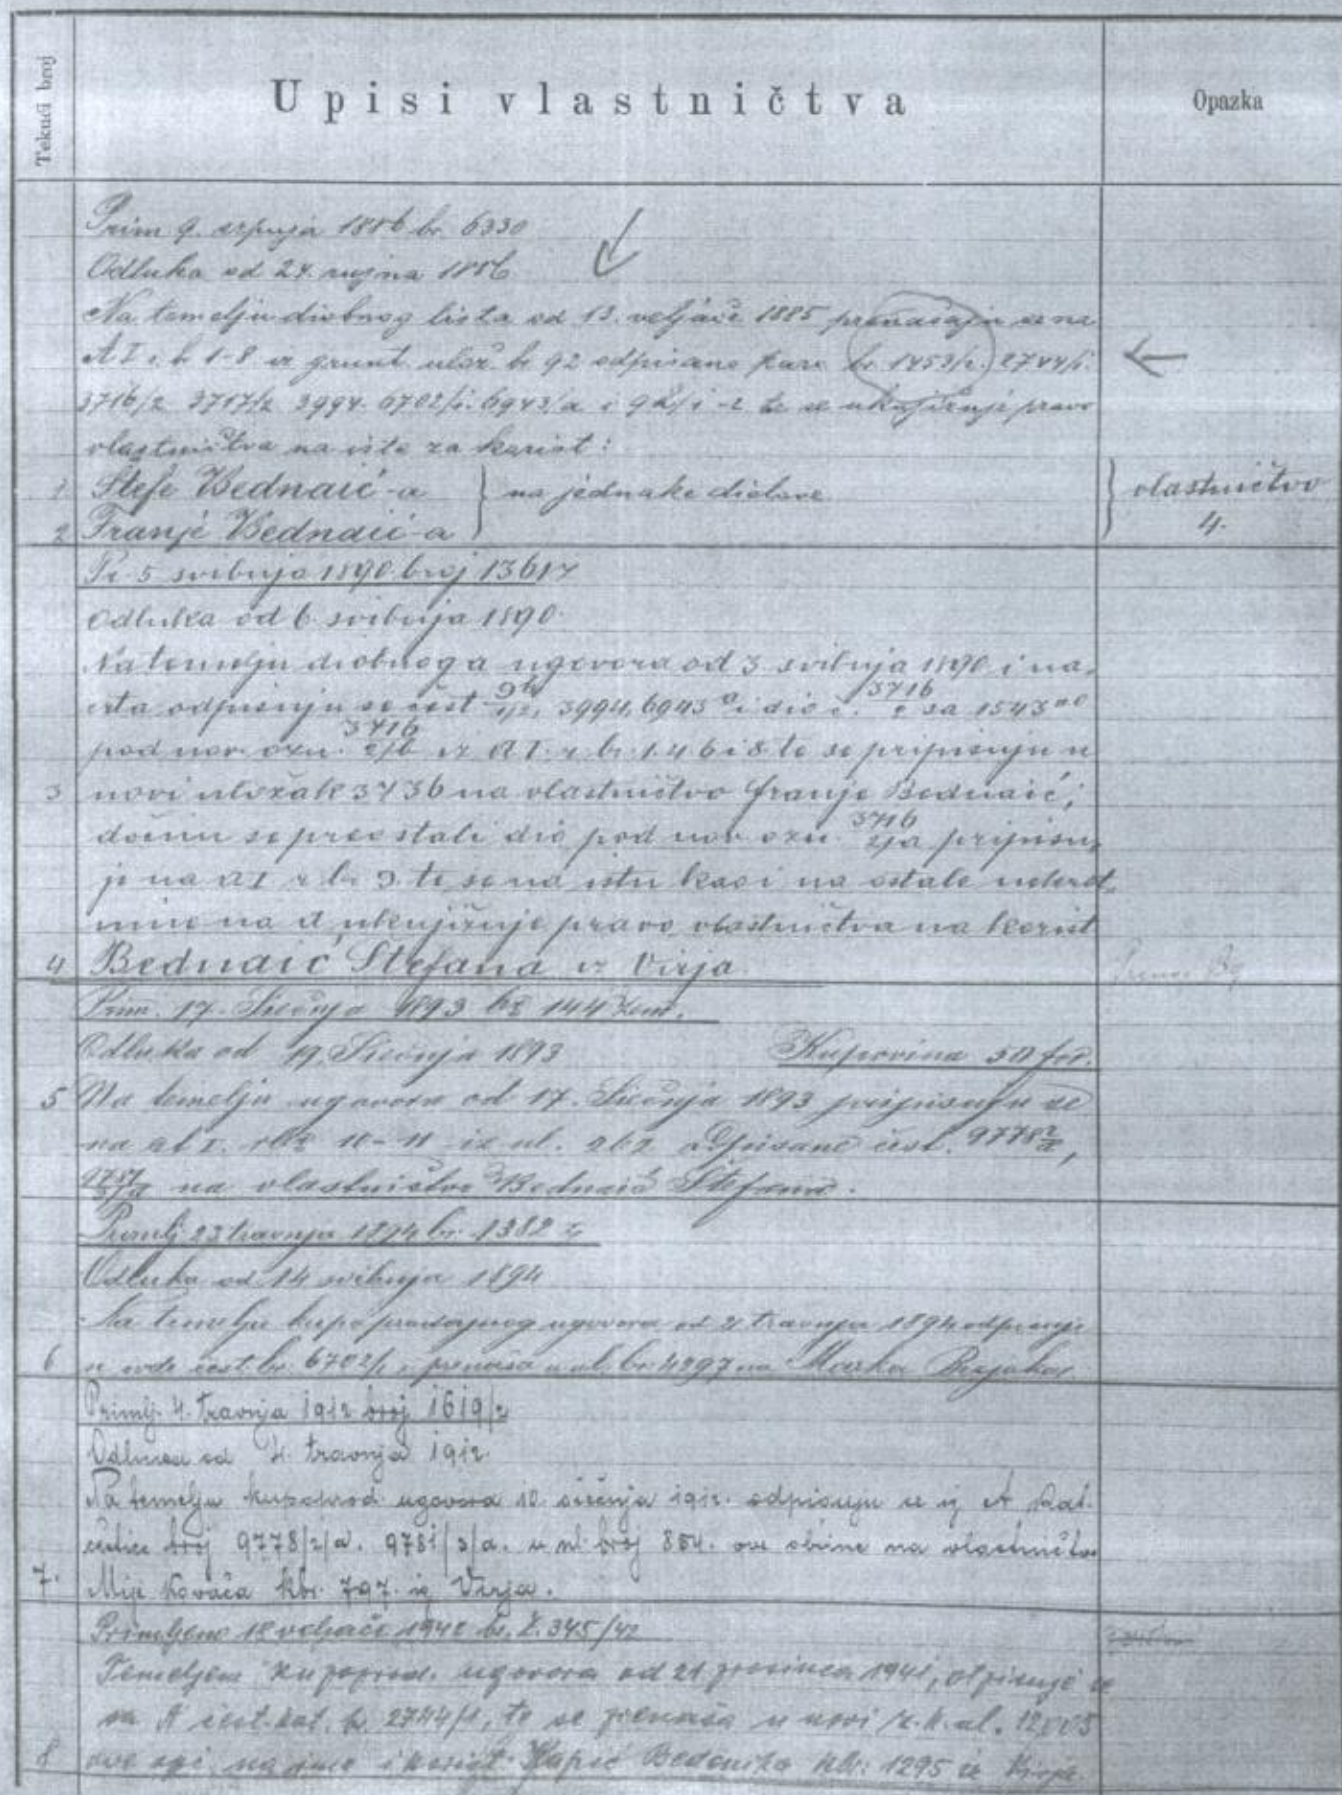 Tekući broj
Upisi vlastničtva
Opazka
Prim 9. srpnja 1886 br. 6330
Odluka od 24. rujna 1886
Na temelju diobnog lista od 13. veljače 1885 prenašaju se na
A I r. b. 1-8 iz grunt. ulož. br 92 odpisane parc br. 1453/2. 2744/1.
3716/2 3717/2 3994. 6702/1. 6943/a i 92/1-2 te se uknjižuje pravo
vlastničtva na iste za korist:
1 Stefe Bednaić-a } na jednake dielove } vlastničtvo
2 Franje Bednaić-a 4.
Pr. 5 svibnja 1890. broj 13617
Odluka od 6 svibnja 1890.
Na temelju diobnoga ugovora od 3 svibnja 1890 i na-
crta odpisuju se čest 3994, 6943 a i dio č. 3716 sa 1543
pod nov. ozn. 3716 2/b iz A I. r. br. 1.4 6 i 8 te se pripisuju u
3 novi uložak 3736 na vlastničtvo Franje Bednaić,
dočim se preostali dio pod nov. ozn. 3716 2/a pripisu-
je na A I r. br. 9. te se na istu kao i na ostale nekret-
nine na A, uknjižuje pravo vlastničtva na korist
4 Bednaić Stefana iz Virja
Prim. 17. Siečnja 1893 br 144
Odluka od 19. Siečnja 1893 Kupovina 50 for.
5 Na temelju ugovora od 17. Siečnja 1893 pripisuju se
na A I. rbr 10-11 iz ul. 262 odpisane čest. 9778 2/a,
9781 3/a na vlastničtvo Bednaić Stefana.
Primlj 23 travnja 1894 br. 1382
Odluka od 14 svibnja 1894
Na temelju kupoprodajnog ugovora od 21 travnja 1894 odpisuje
6 se ovdi čest. br. 6702/1 i prenaša u ul. br. 4297 na Marka
Primlj. 4. travnja 1912 broj 1619/2
Odluka od 4. travnja 1912.
Na temelju kupoprod. ugovora 10. siečnja 1912. odpisuju se iz A kat.
čestice broj 9778/2/a. 9781/3/a. u ul. broj 854. ove obćine na vlastničtvo
7. Mije Kovača kbr. 797. iz Virja.
Primljeno 18 veljače 1942 br. Z. 345/42
Temeljem kupoprod. ugovora od 21 prosinca 1941, otpisuje se
sa A čest. kat. br. 2744/1, te se prenaša u novi z.k. ul. 12005
8 ove opć. na ime i korist kbr: 1295 iz Virja.